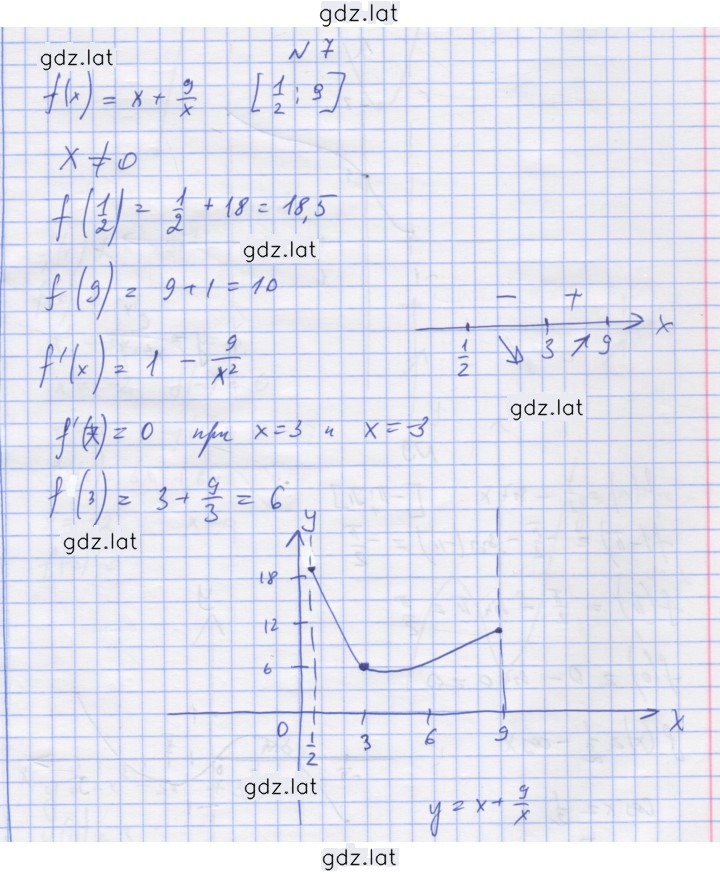 gdz.lat
gdz.lat
N 7
f(x) = x + 9/x [1/2 ; 9]
x ≠ 0
f(1/2) = 1/2 + 18 = 18,5
gdz.lat
f(9) = 9 + 1 = 10
− +
1/2 ↘ 3 ↗ 9 x
f'(x) = 1 − 9/x²
gdz.lat
f'(x) = 0 при x = 3 и x = -3
f(3) = 3 + 9/3 = 6
gdz.lat
y
18
12
6
0 1/2 3 6 9 x
gdz.lat
y = x + 9/x
gdz.lat